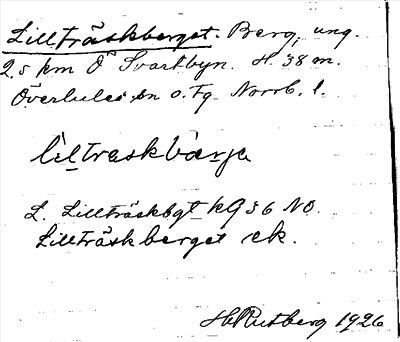 Lillträskberget. Berg, ung.
2.5 km Ö Svartbyn. H. 38 m.
Överlulei sn o. Fg. Norrb. l.
lìltraskbärje
L. Lillträskbgt kg 36 NO.
Lillträskberget ek.
H. Rutberg 1926